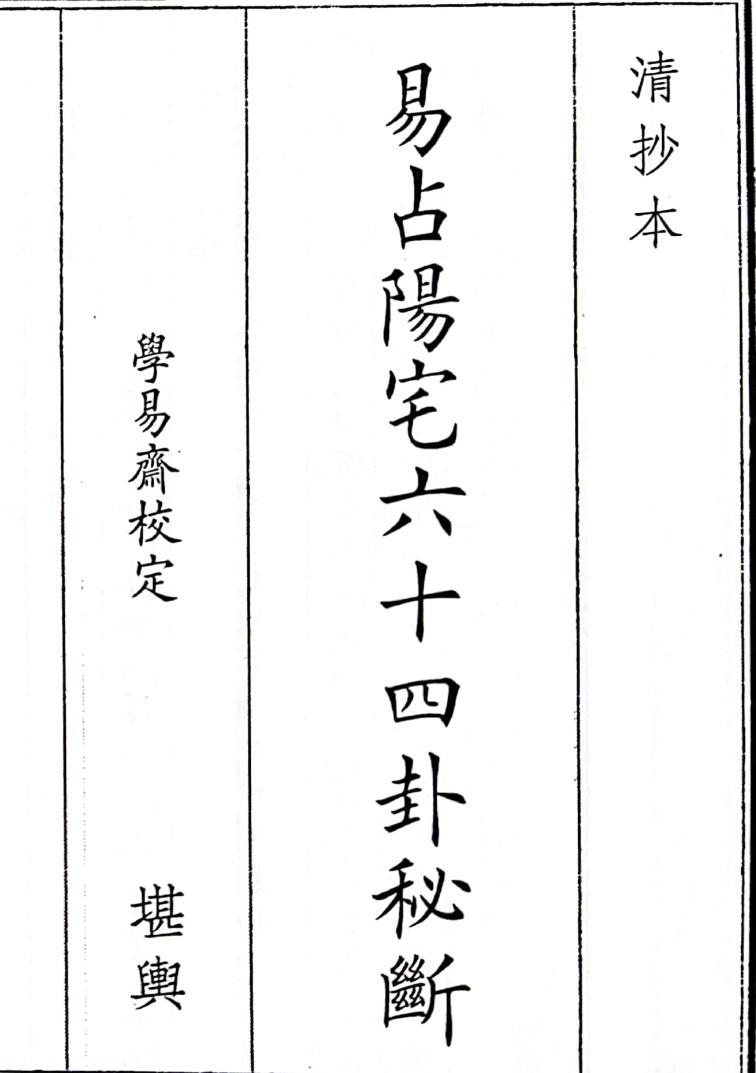 清抄本
易占陽宅六十四卦秘斷
學易齋校定
堪輿